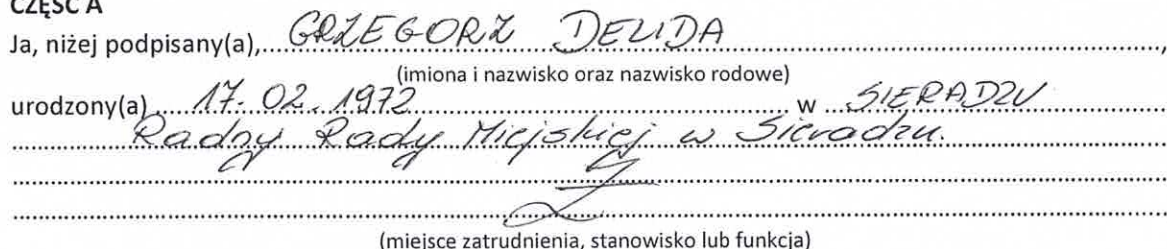 CZĘŚĆ A
Ja, niżej podpisany(a), GRZEGORZ DELIDA,
(imiona i nazwisko oraz nazwisko rodowe)
urodzony(a) 17.02.1972 w SIERADZU
Radny Rady Miejskiej w Sieradzu.
(miejsce zatrudnienia, stanowisko lub funkcja)